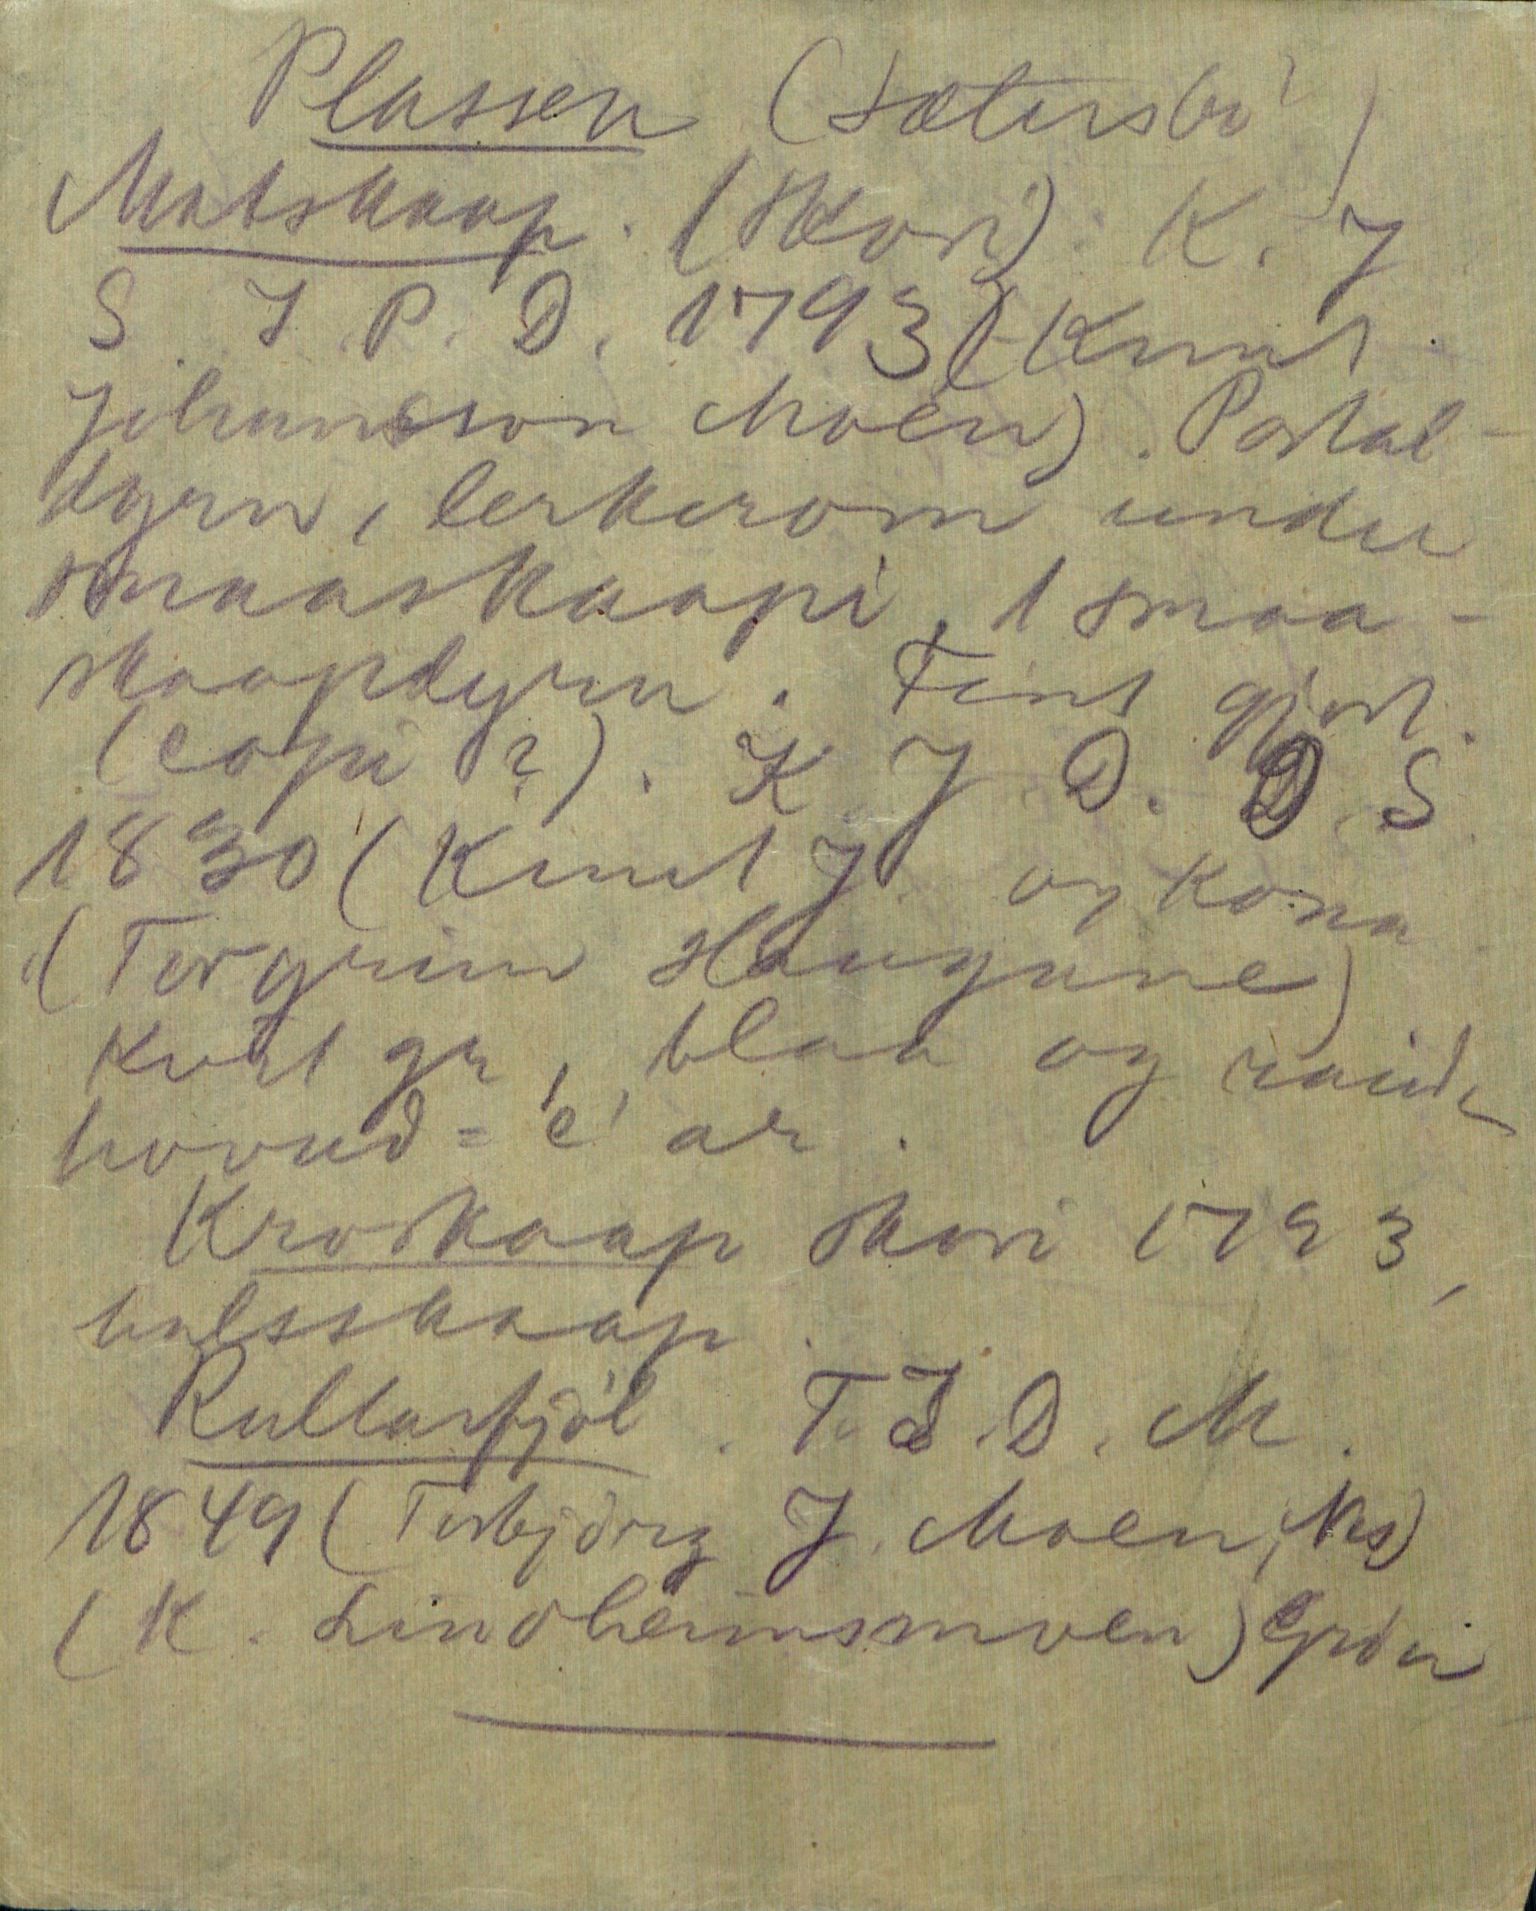 Plassen (Sætersbö)
Matskaap. (Skori): K. J
S. J. P. D. 1793 (Knut
Johansson Moen). Portal-
dyrn, lerkerom under
smaaskaapi, 1 smaa-
skaapdyrn. Fint gjort.
(copi ?). K. J. D. D. S.
1830 (Knut J og kona
(Torgrim Haugane)
Kvit gr, blaa og raude
hovud= e ar.
Kroskaap skori 1793,
halsskaap.
Rullarfjöl. T. J. D. M.
1849 (Torbjörg J. Moen, Nes)
(K. Lindheimsmoen) Grön